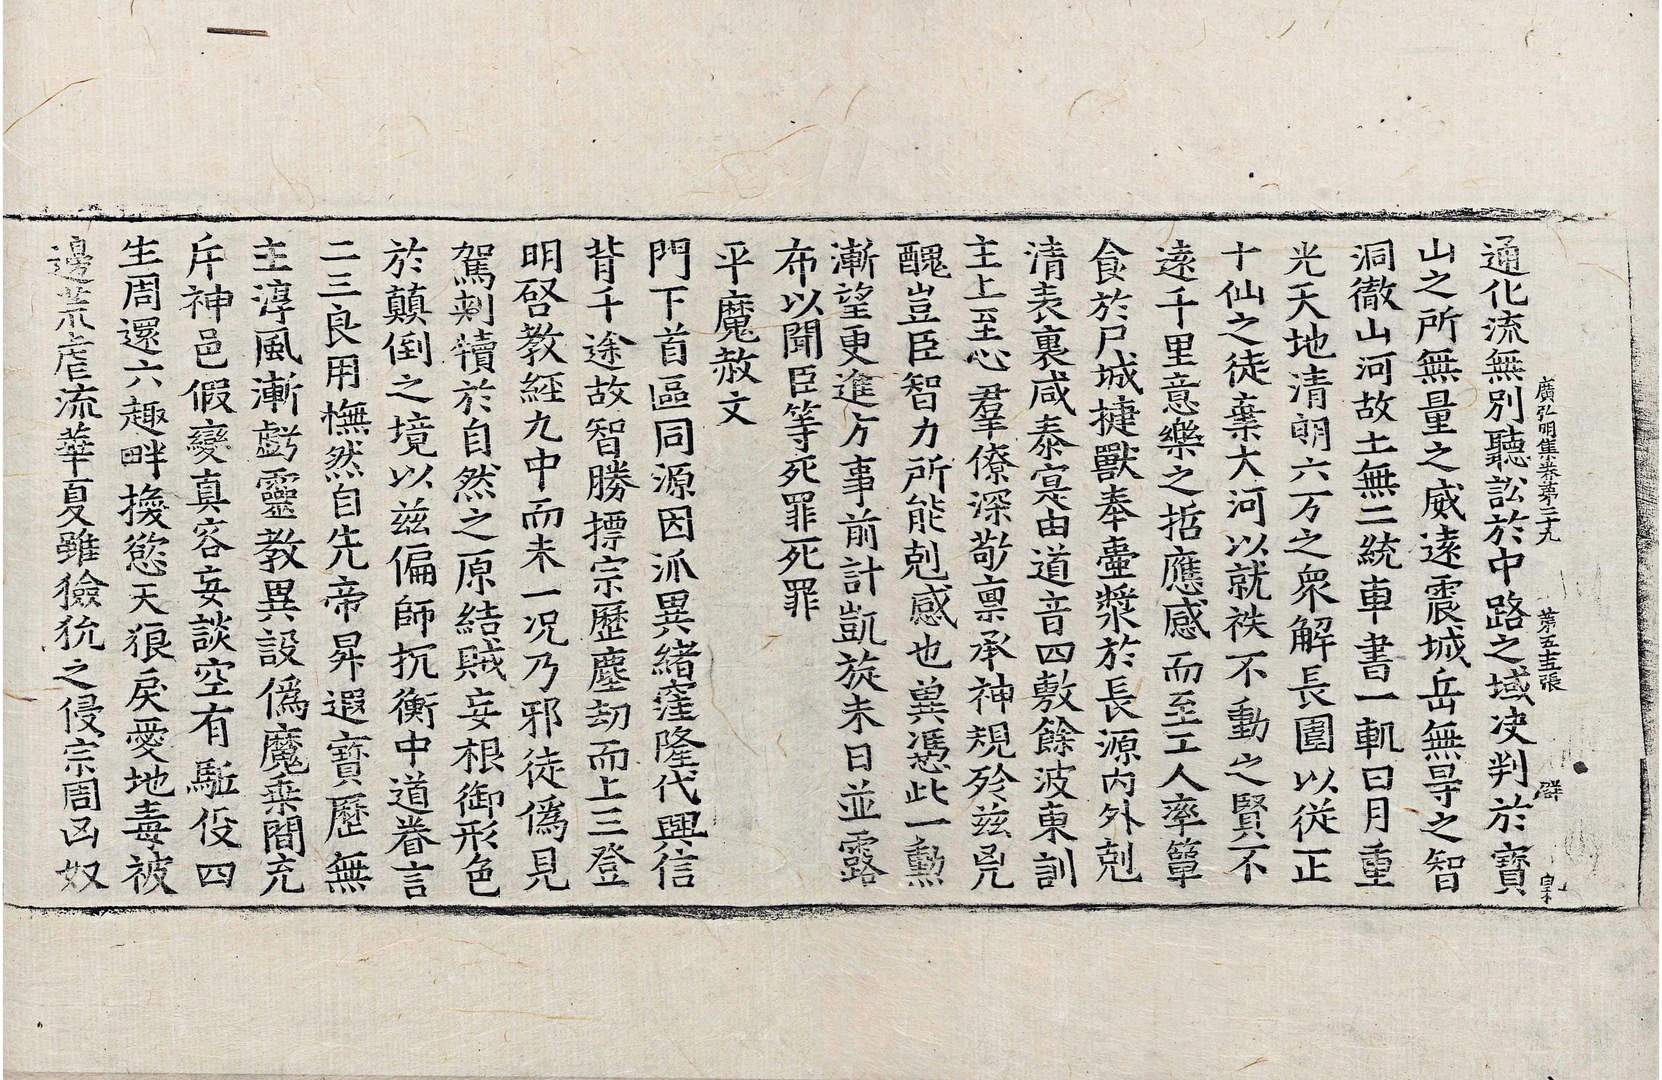 廣弘明集卷第二十九 第五十五張 群 字
通化流無別聽訟於中路之域決判於寶
山之所無量之威遠震城岳無㝵之智
洞徹山河故土無二統車書一軌日月重
光天地清朗六万之衆解長圍以從正
十仙之徒棄大河以就祑不動之賢不
遠千里意樂之哲應感而至工人率簞
食於尸城捷獸奉壷漿於長源內外剋
清表裏咸泰寔由道音四敷餘波東訓
主上至心羣僚深敬禀承神規殄兹凶
醜豈臣智力所能剋感也兾憑此一勳
漸望更進方事前計凱旋未日並露
布以聞臣等死罪死罪
平魔赦文
門下首區同源因派異緒窪隆代興信
背千途故智勝摽宗歷塵劫而上三登
明啓教經九中而未一况乃邪徒偽見
駕刾犢於自然之原結賊妄根御形色
於顛倒之境以兹偏師抗衡中道眷言
二三良用憮然自先帝昇遐寶歷無
主淳風漸虧靈教異設偽魔乗間充
斥神邑假變真容妄談空有駈伇四
生周還六趣畔換慾天狼戾愛地毒被
邊荒虐流華夏雖獫狁之侵宗周凶奴